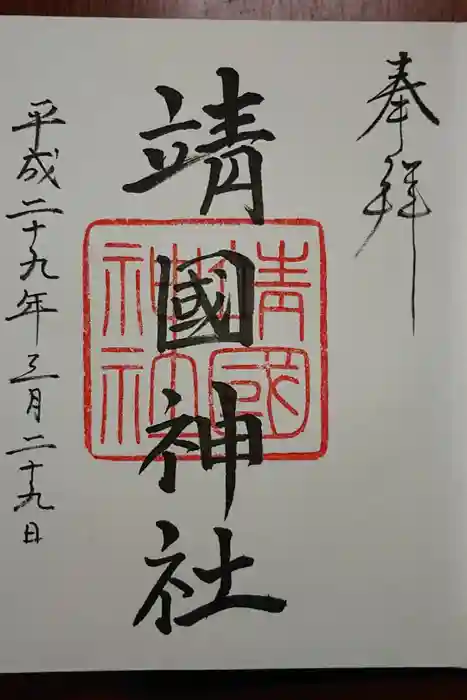 奉拝
靖國神社
靖國神社
平成二十九年三月二十九日